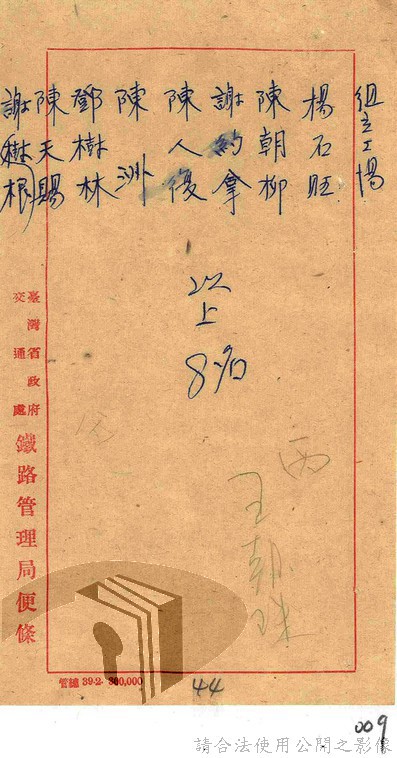 組立工場
楊石旺
陳朝柳
謝約拿
陳人復
陳洲
鄧樹林
陳天賜
謝樹根
以上
8名
丙
王朝珠
臺灣省政府
交通處
鐵路管理局便條
管總 39·2· 300,000
44
009
請合法使用公開之影像